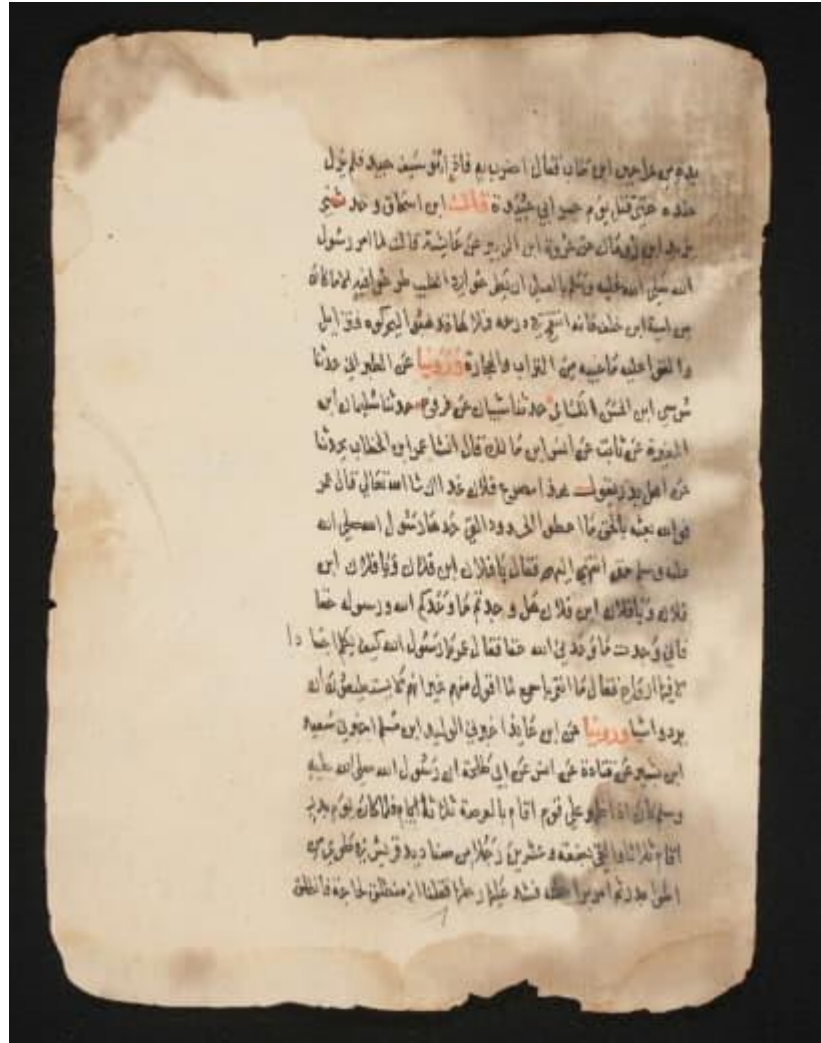 يده من عراجين ابن طاب فقال اضرب به فاذا هو سيف جيد فلم يزل
عنده حتى قتل يوم جسر ابي عبيدة قال ابن اسحاق وحدثني
يزيد ابن رومان عن عروة ابن الزبير عن عايشة قالت لما امر رسول
الله صلى الله عليه وسلم بالقتلى ان يطرحوا في القليب طرحوا فيه الا ما كان
من امية ابن خلف فانه انتفخ في درعه فلاها فذهبوا ليحركوه فتزايل
والقوا عليه ما غيبه من التراب والحجارة وروينا عن الطبراني حدثنا
موسى ابن الحسن الكسائي حدثنا شيبان عن فروخ حدثنا سليمان ابن
المغيرة عن ثابت عن انس ابن مالك قال انشا عمر ابن الخطاب يحدثنا
عن اهل بدر يقول هذا مصرع فلان غدا ان شا الله تعالى قال عمر
فوالله بعثه بالحق ما اخطوا الحدود التي حدها رسول الله صلى الله
عليه وسلم حتى انتهى اليهم فقال يا فلان ابن فلان ويا فلان ابن
فلان ويا فلان ابن فلان هل وجدتم ما وعدكم الله ورسوله حقا
فاني وجدت ما وعدني الله حقا فقال عمر يا رسول الله كيف تكلم اجسادا
لا فيها ارواح فقال ما انتم باسمع لما اقول منهم غير انهم لا يستطيعون ان
يردوا شيا وروينا عن ابن عايذ اخبرني الوليد ابن مسلم اخبرني سعيد
ابن بشير عن قتادة عن انس عن ابي طلحة ان رسول الله صلى الله عليه
وسلم كان اذا ظهر على قوم اقام بالعرصة ثلاثة ايام فلما كان يوم بدر
اقام ثلاثا والقى بضعة وعشرين رجلا من صناديد قريش في طوى من
اطوا بدر ثم امر براحلته فشد عليها رحلها فقلنا انه منطلق لحاجة فانطلق